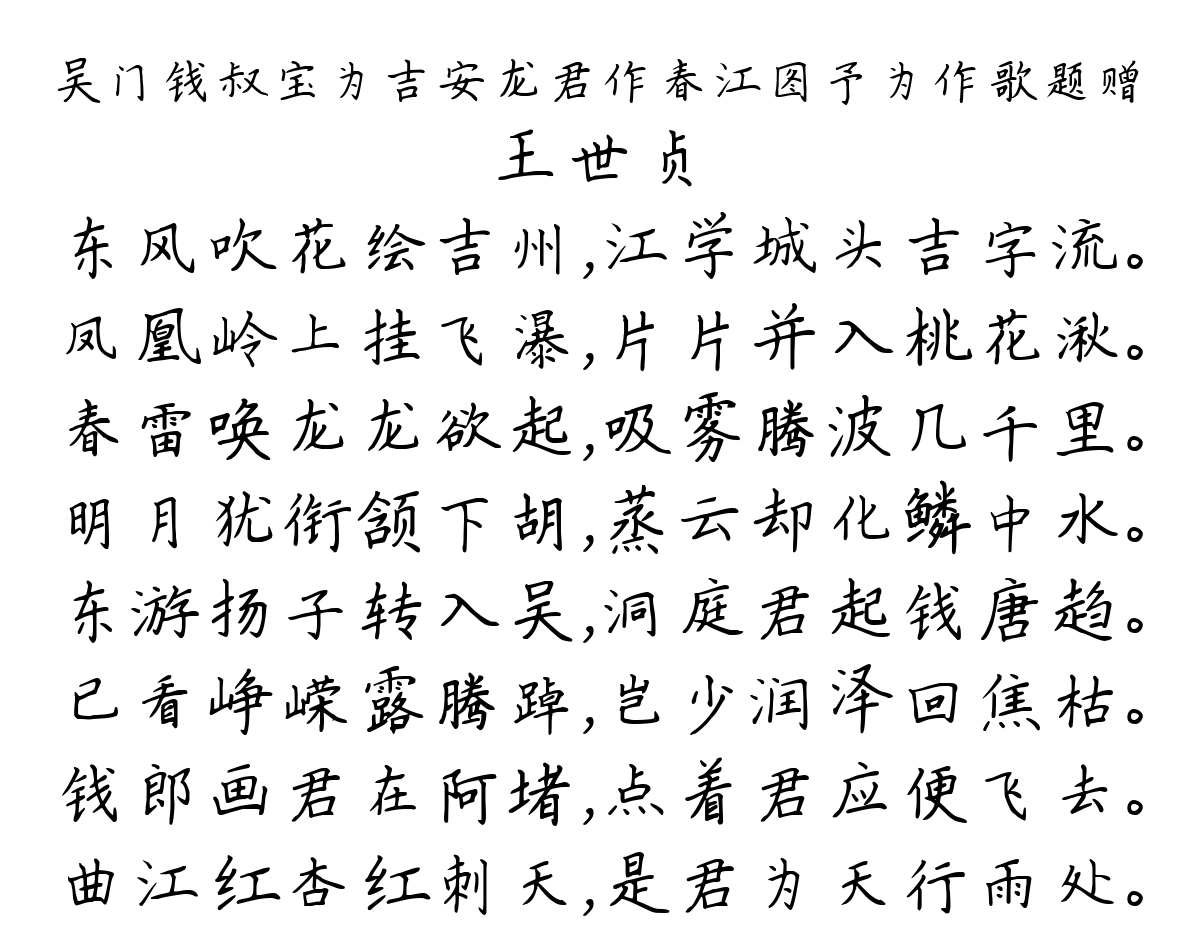 吴门钱叔宝为吉安龙君作春江图予为作歌题赠
王世贞
东风吹花绘吉州,江学城头吉字流。
凤凰岭上挂飞瀑,片片并入桃花湫。
春雷唤龙龙欲起,吸雾腾波几千里。
明月犹衔颔下胡,蒸云却化鳞中水。
东游扬子转入吴,洞庭君起钱唐趋。
已看峥嵘露腾踔,岂少润泽回焦枯。
钱郎画君在阿堵,点着君应便飞去。
曲江红杏红刺天,是君为天行雨处。